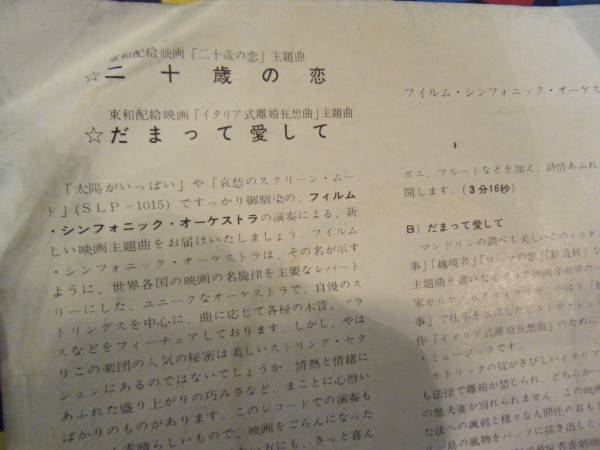 東和配給映画「二十歳の恋」主題曲
☆二十歳の恋
東和配給映画「イタリア式離婚狂想曲」主題曲
☆だまって愛して
「太陽がいっぱい」や「哀愁のスクリーン・ムー
ド」(SLP-1015)ですっかり御馴染の、フィルム
・シンフォニック・オーケストラの演奏による、新
しい映画主題曲をお届けいたしましょう。フィルム
・シンフォニック・オーケストラは、その名が示す
ように、世界各国の映画の名旋律を主要なレパート
リーにした、ユニークなオーケストラで、自慢のス
トリングスを中心に、曲に応じて各種の木管、ブラ
スなどをフィーチュアしております。しかし、やは
りこの楽団の人気の秘密は美しいストリング・セク
ションにあるのではないでしょうか。情熱と情緒に
あふれた盛り上がりの巧みさなど、まことに心憎い
ばかりのものがあります。このレコードでの演奏も
素晴らしいもので、映画をごらんになった
方にも、きっと喜ん
フイルム・シンフォニック・オーケス
ボエ、フルートなどを加え、詩情あふれ
開します。(3分16秒)
B) だまって愛して
マンドリンの調べも美しいこのメロデ
事」「越境者」「ローマの恋」「鉄道員」な
主題曲を書いたイタリア映画音楽界の
家カルロ・ルスティケリが、やはり「
事」で仕事を共にしたピエトロ・ジェ
作「イタリア式離婚狂想曲」のために
・ミュージックです。
カトリックの掟がきびしいイタリア
も法律で離婚が禁じられ、どちらか
の限夫妻が別れられません。この映
た法への諷刺と様々な人間性のおもし
リー島の風物をバックに描き出した